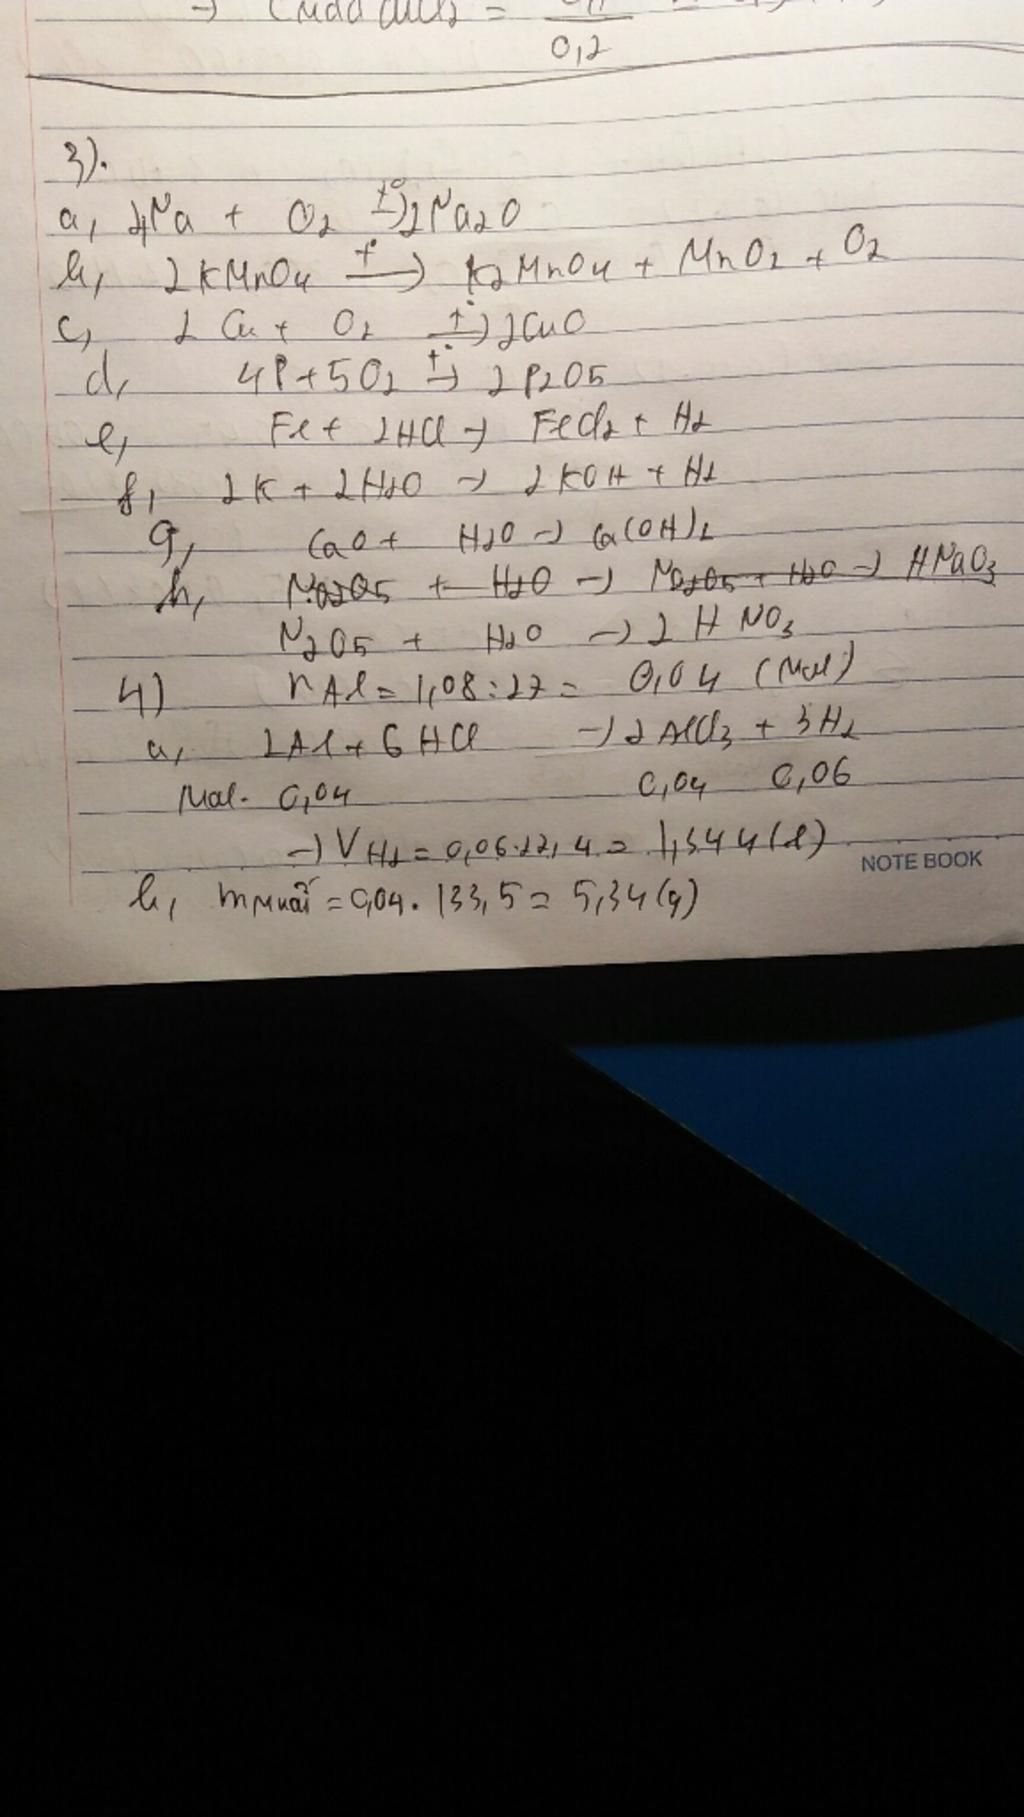 0,2
3).
a, 4Na + O2 t°→ 2Na2O
b, 2KMnO4 t°→ K2MnO4 + MnO2 + O2
c, 2Cu + O2 t°→ 2CuO
d, 4P + 5O2 t°→ 2P2O5
e, Fe + 2HCl → FeCl2 + H2
f, 2K + 2H2O → 2KOH + H2
g, CaO + H2O → Ca(OH)2
h, Na2O5 + H2O → Na2O5 + H2O → HNaO3
N2O5 + H2O → 2HNO3
4) nAl = 1,08 : 27 = 0,04 (mol)
a, 2Al + 6HCl → 2AlCl3 + 3H2
Mol. 0,04 0,04 0,06
→ VH2 = 0,06.22,4 = 1,344 (l)
NOTE BOOK
b, mmuối = 0,04 . 133,5 = 5,34 (g)